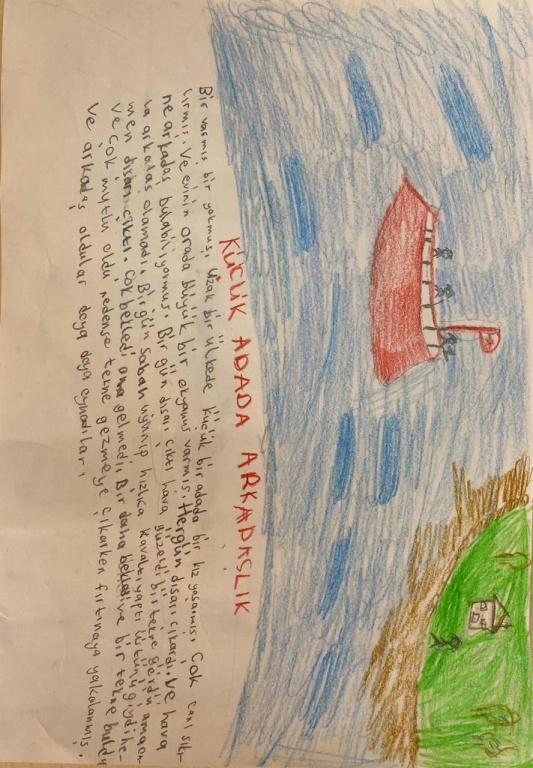 KÜÇÜK ADADA ARKADAŞLIK
Bir varmış bir yokmuş, uzak bir ülkede küçük bir adada bir kız yaşarmış. Çok canı sıkı-
lırmış. Ve evinin orada büyük bir okyanus varmış. Hergün dışarı çıkardı. Ve hava
ne arkadaş bulabiliyormuş. Bir gün dışarı çıktı hava güzeldi bir tekne gördü ama on
la arkadaş olamadı. Bir gün sabah uyanıp hızlıca kavaltı yaptı üstünü giydi he-
men dışarı çıktı. Çok bekledi ama gelmedi. Bir daha bekledi ve bir tekne buldu
ve çok mutlu oldu nedense tekne gezmeye çıkarken fırtınaya yakalanmış.
Ve arkadaş oldular doya doya oynadılar.